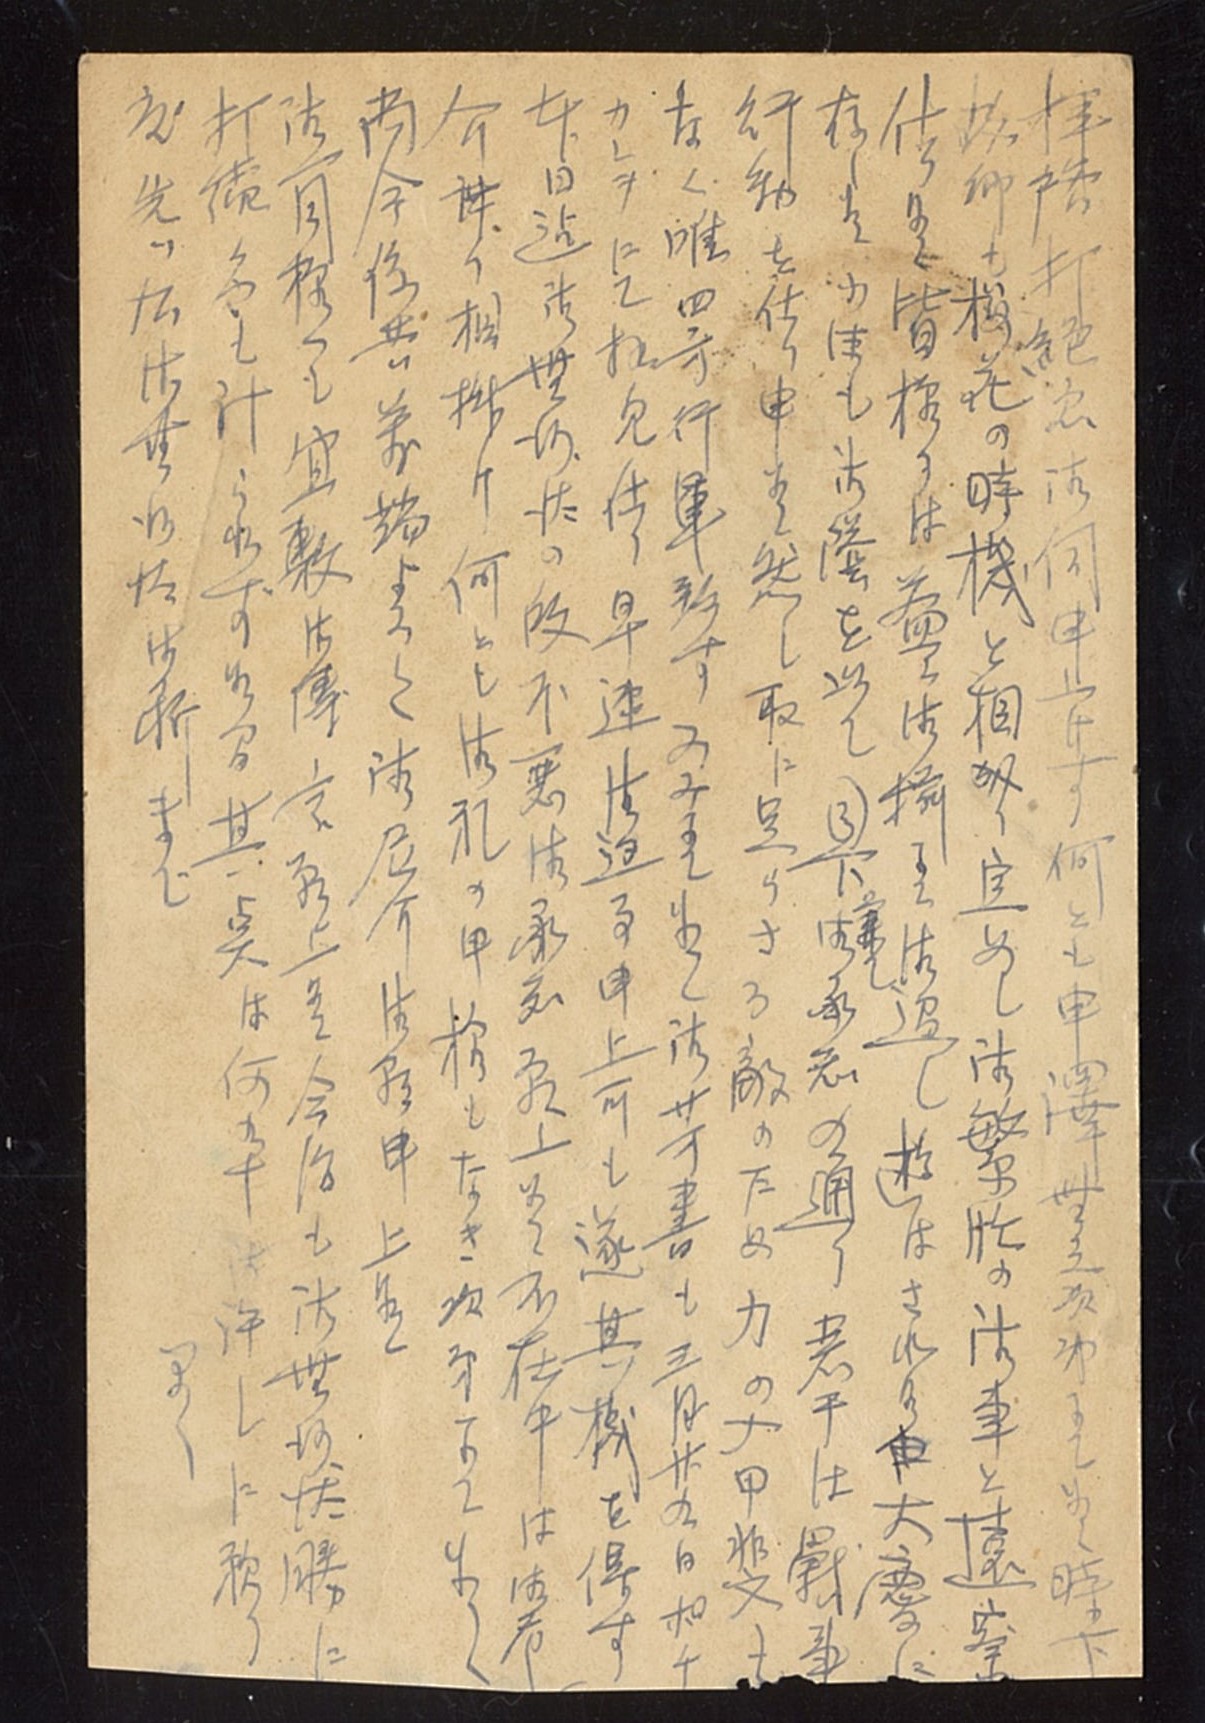 拝啓打絶え御伺申上げず何とも申澤無之次第に御座候 時下
故郷も櫻花の時機と相成り定めし御繁忙の御事と遠察
仕り候 皆様には益々御揃之御過し遊はされ候事大慶に
存し候 小生も御蔭を以て目下御承知の通り若干は戦事
行動を仕り申候 然し取に足らさる敵のため力の入甲斐も
なく唯四方行軍致す のみ
御芳書も三月廿九日
カンチにて拝見仕り早速御返事申上可も遂其機を得す
本日迄御無沙汰の段不悪御承知願上候 不在中は御厄
介 相掛け何とも御礼の申様もなき次第
尚今後共萬端よろしく御厄介御願申上候
皆様へも宜敷御傳言願上候 今後も御無沙汰勝に
打続くも計られず候間其点は何卒御許しに預り
度 先は右御無沙汰御断まで
早々